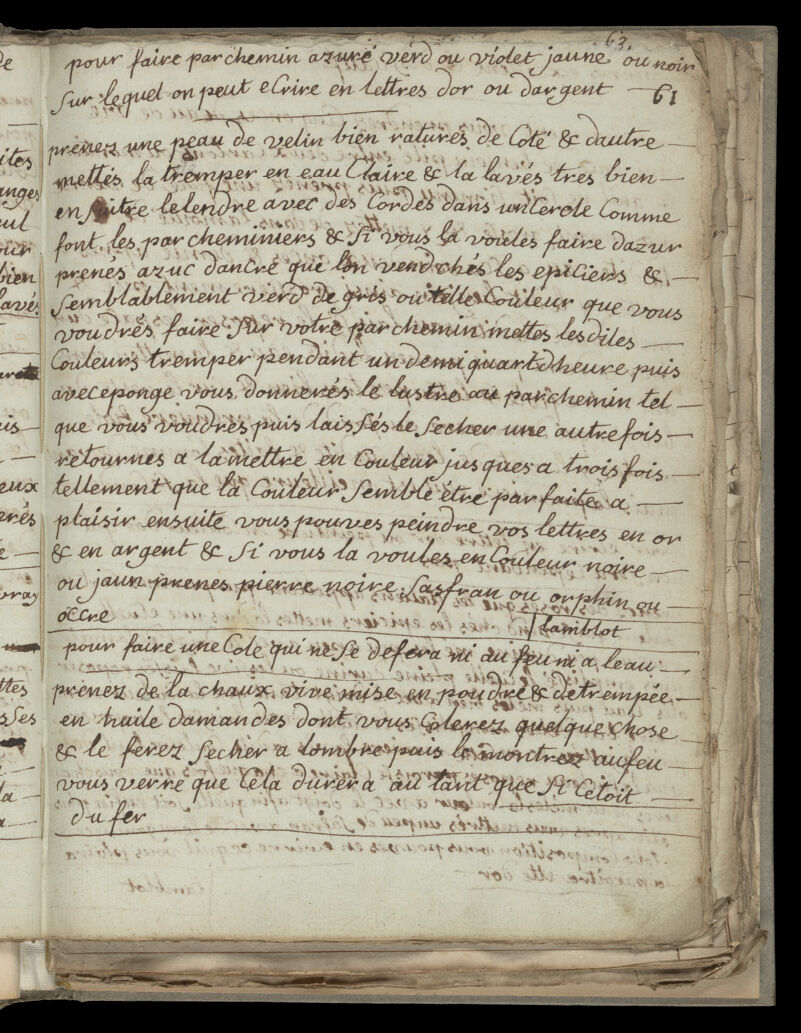 63.
pour faire parchemin azuré verd ou violet jaune ou noir
sur lequel on peut eCrire en lettres dor ou dargent — 61
prenez une peau de velin bien raturés de Coté & dautre —
mettés la tremper en eau Claire & la lavés tres bien —
en suitre le tendre avec des Cordes dans un Cercle Comme
font les parcheminiers & si vous la voulés faire dazur
prenés azuc dancre que lon vend chés les epiciers & —
semblablement verd de gris ou telle Couleur que vous
voudrés faire sur votre parchemin mettes lesdites —
Couleurs tremper pendant un demi quart dheure puis
avec eponge vous donnerés le lustre au parchemin tel —
que vous voudrés puis laissés le secher une autre fois —
retournes a la mettre en Couleur jusques a trois fois
tellement que la Couleur semble étre parfaite a —
plaisir ensuite vous pouves peindre vos lettres en or
& en argent & si vous la voules en Couleur noire —
ou jaun prenes pierre noire sasfran ou orphin ou —
occre
lamblot
pour faire une Cole qui ne se defera ni au feu ni a leau —
prenez de la chaux vive mise en poudre & detrempée —
en huile damandes dont vous Colerez quelque chose
& le ferez secher a lombre puis le montrez au feu
vous verre que Cela durera au tant que si Cetoit —
du fer
ites
anges
eul
our
bien
lavés
is —
eux
erés
e —
vray
ttes
la —
a —